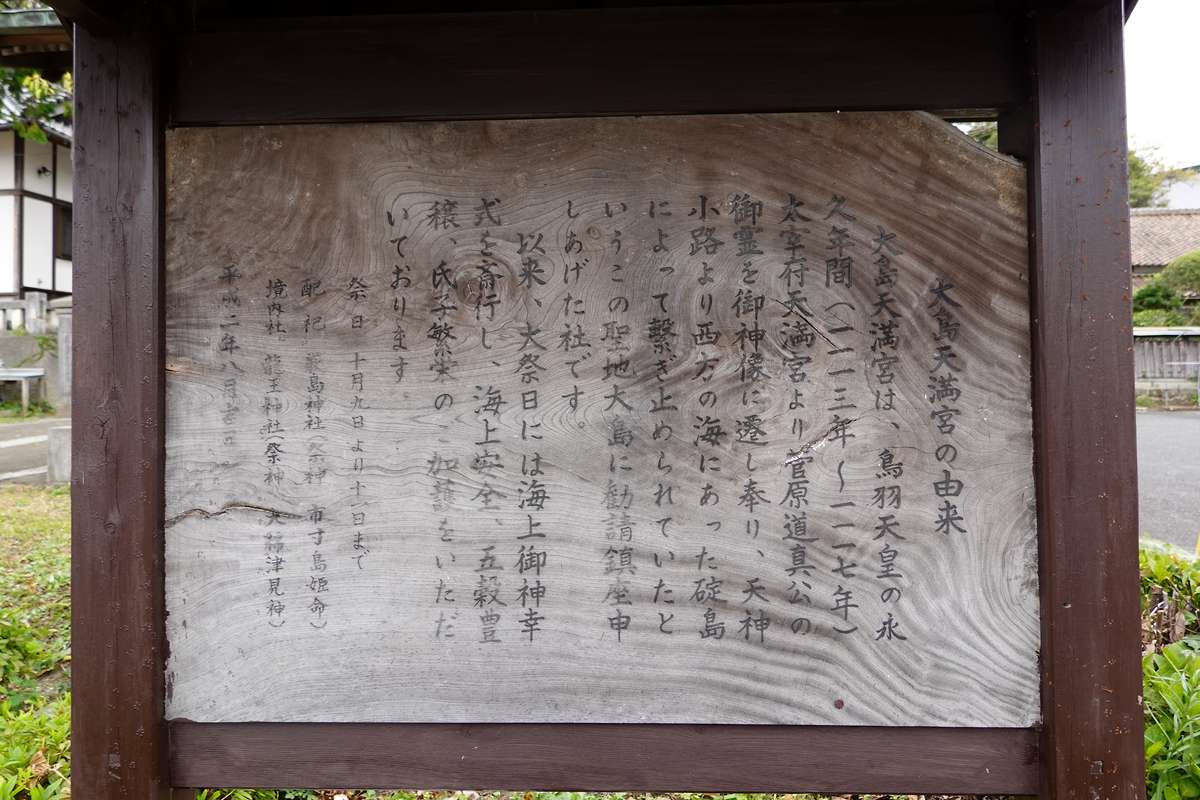 大島天満宮の由来
大島天満宮は、鳥羽天皇の永
久年間(一一一三年～一一一七年)
太宰府天満宮より菅原道真公の
御霊を御神像に遷し奉り、天神
小路より西方の海にあった碇島
によって繋ぎ止められていたと
いうこの聖地大島に勧請鎮座申
しあげた社です。
以来、大祭日には海上御神幸
式を斎行し、海上安全、五穀豊
穣、氏子繁栄の御加護をいただ
いております
祭日 十月九日より十一日まで
配祀 厳島神社(祭神 市寸島姫命)
境内社 龍王神社(祭神 大綿津見神)
平成二年八月吉日